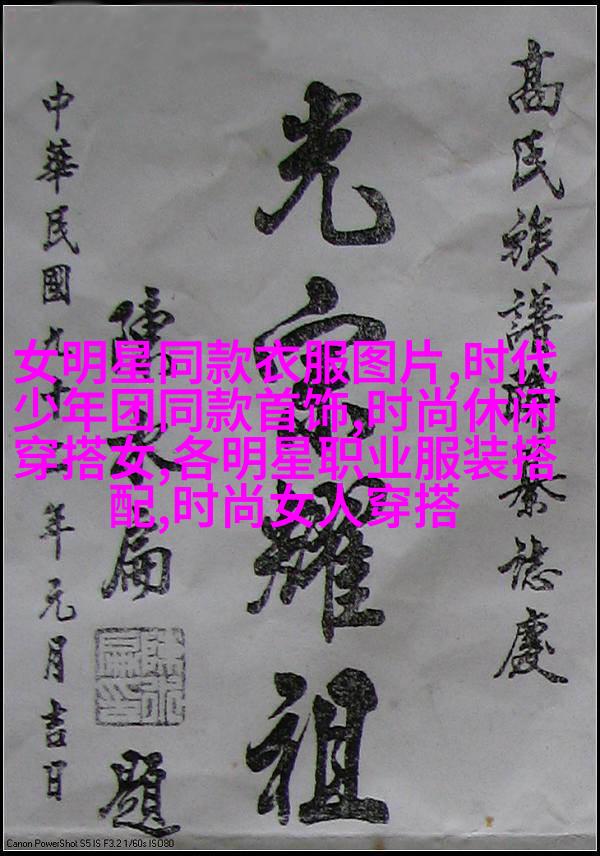 高氏族譜誌慶
光宗耀祖
陳水扁題
中華民國九十年元月吉日
女明星同款衣服图片,时代
少年团同款首饰,时尚休闲
穿搭女,各明星职业服装搭
配,时尚女人穿搭
Canon PowerShot S5 IS F3.2 1/60s ISO80